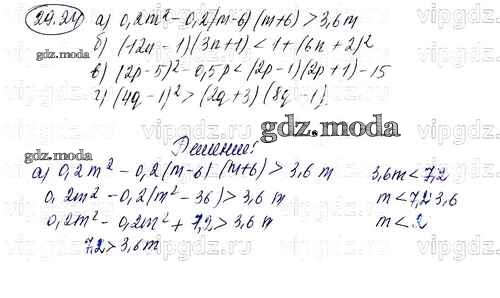 29.24 а) 0,2m² - 0,2(m-6)(m+6) > 3,6m
б) (12n - 1)(3n+1) < 1+(6n+2)²
в) (2p-5)² - 0,5p < (2p-1)(2p+1) - 15
г) (4q-1)² > (2q+3)(8q-1).
gdz.moda
Решение:
gdz.moda
а) 0,2m² - 0,2(m-6)(m+6) > 3,6m 3,6m < 7,2
0,2m² - 0,2(m² - 36) > 3,6m m < 7,2:3,6
0,2m² - 0,2m² + 7,2 > 3,6m m < 2
7,2 > 3,6m